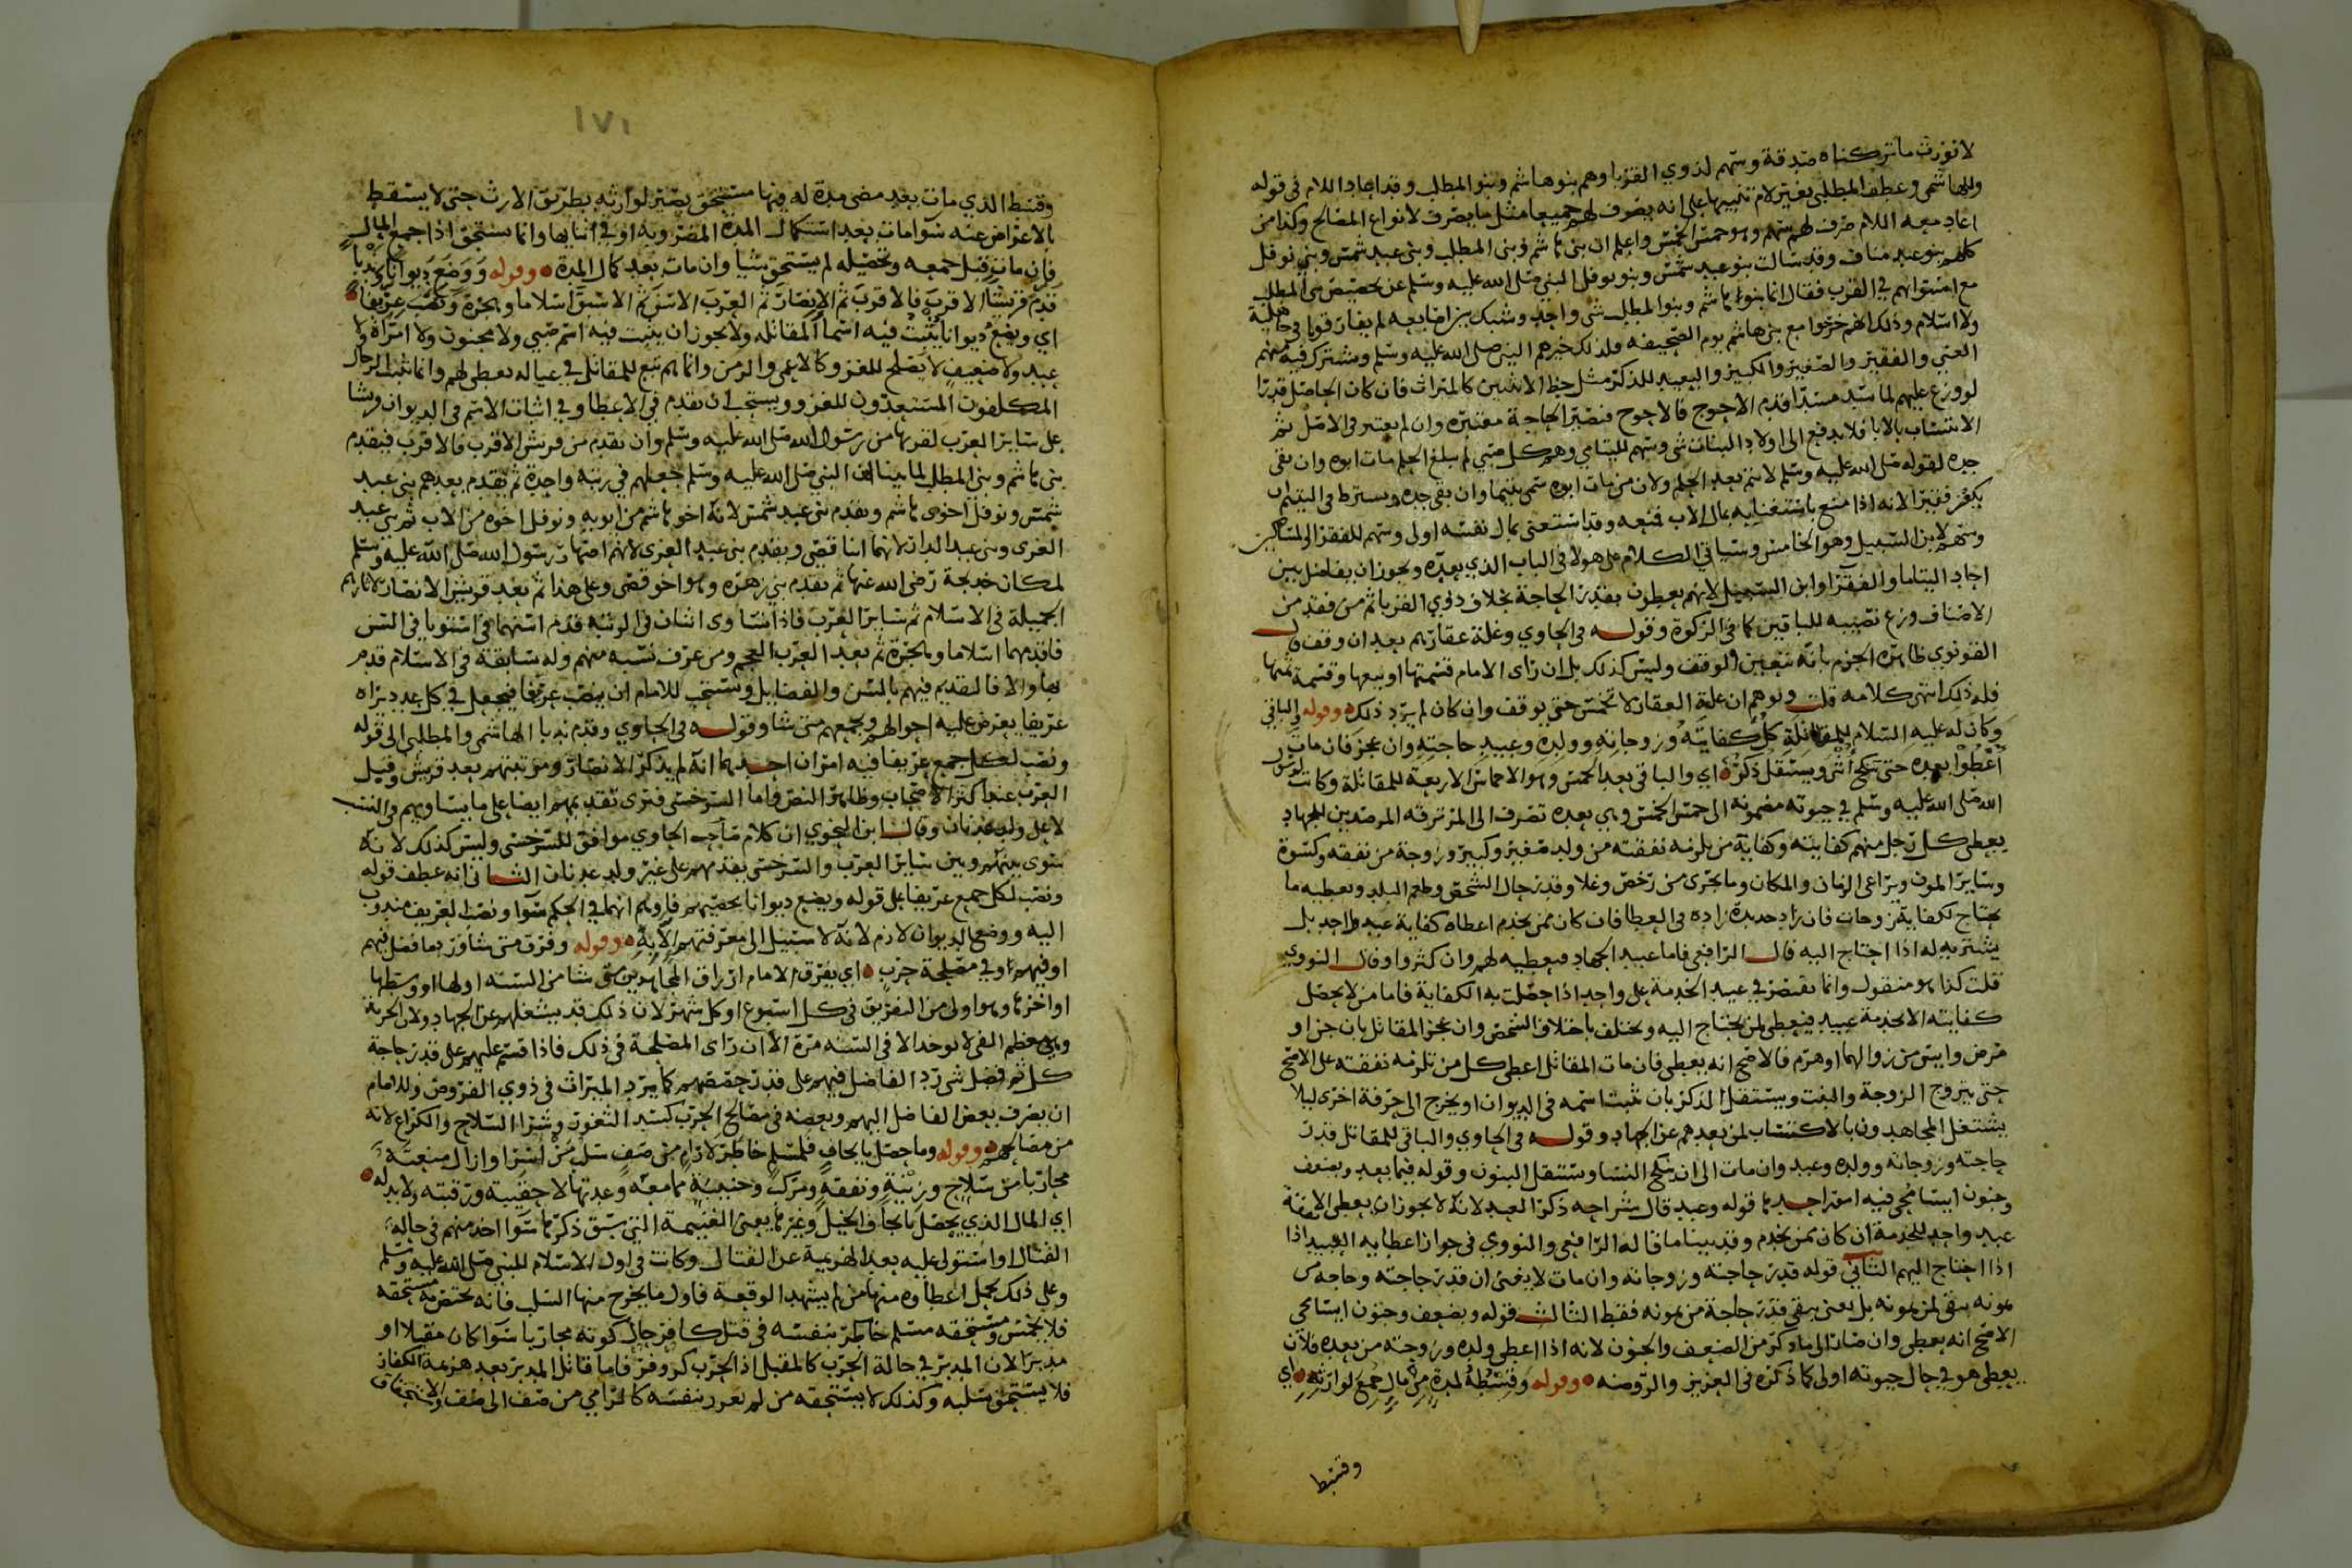 لا نورث ما تركناه صدقة وسهم لذوي القربا وهم بنو هاشم وبنو المطلب وقد اعاد اللام في قوله
وللهاشمي وعطف المطلبي بغير لام تنبيها على انه يصرف لهم جميعا مثل ما يصرف لانواع المصالح وكذا من
اعاد معه اللام صرف لهم سهم وهو خمس الخمس واعلم ان بني هاشم وبني المطلب وبني عبد شمس وبني نوفل
كلهم بنو عبد مناف وقد سالت بنو عبد شمس وبنو نوفل النبي صلى الله عليه وسلم عن تخصيص بني المطلب
مع استوائهم في القرب فقال انما بنوا هاشم وبنوا المطلب شي واحد وشبك بين اصابعه لم يفارقونا في جاهلية
ولا اسلام وذلك انهم خرجوا مع بني هاشم يوم الصحيفه ولذلك خيرهم النبي صلى الله عليه وسلم ويشترك فيه منهم
الغني والفقير والصغير والكبير والبعيد للذكر مثل حظ الانثيين كالميراث فان كان الحاصل قدرا
لو وزع عليهم لما سد مسدا قدم الاحوج فالاحوج فتصير الحاجة معتبره وان لم يعتبر في الاصل ثم
الانتساب بالابا فلا يدفع الى اولاد البنات شي وسهم لليتامي وهم كل صبي لم يبلغ الحلم مات ابوه وان بقي
جده لقوله صلى الله عليه وسلم لا يتم بعد الحلم ولان من مات ابوه سمي يتيما وان بقي جده ويشترط في اليتيم ان
يكون فقيرا لانه اذا منع باستغنايه بمال الاب فمنعه وقد استغنى بمال نفسه اولى وسهم للفقرا والمساكين
وسهم لابن السبيل وهو الخامس وسياتي الكلام على هولا في الباب الذي بعده ويجوز ان يفاضل بين
احاد اليتاما والفقرا وابن السبيل لانهم يعطون بقدر الحاجة بخلاف ذوي القربا ثم من فقد من
الاصناف وزع نصيبه للباقين كما في الزكوة وقوله في الحاوي وغلة عقارهم بعد ان وقف قال
القونوي ظاهره الجزم بانه يتعين الوقف وليس كذلك بل ان راى الامام قسمتها او بيعها وقسمة ثمنها
فله ذلك انتهى كلامه قلت ويوهم ان غلة العقار لا تخمس حتى يوقف وان كان لم يرد ذلك وقوله والباقي
وكان له عليه السلام للمقاتلة كل كفايته وزوجاته وولده وعبيد حاجته وان عجز فان مات
اعطوا بعده حتى تنكح انثى ويستقل ذكر اي والباقي بعد الخمس وهو الاخماس الاربعة للمقاتلة وكانت لرسول
الله صلى الله عليه وسلم في حيوته مضمونه الى خمس الخمس وهي بعده تصرف الى المرتزقه المرصدين للجهاد
يعطى كل رجل منهم كفايته وكفاية من يلزمه نفقته من ولد صغير وكبير وزوجة من نفقه وكسوة
وساير المون ويراعى الزمان والمكان وما يجرى من رخص وغلا وقدر حال الشخص وطعم البلد ويعطيه ما
يحتاج لكفاية زوجات فان زاد جديدة زاده في العطا فان كان ممن يخدم اعطاه كفاية عبد واحد بل
يشتريه له اذا احتاج اليه قال الرافعي فاما عبيد الجهاد فيعطيه لهم وان كثروا وقال النووي
قلت كذا هو منقول وانما يقتصر في عبيد الخدمة على واحد اذا حصلت به الكفاية فاما من لا يحصل
كفايته الا بخدمة عبيد فيعطى لمن يحتاج اليه ويختلف باختلاف الشخص وان عجز المقاتل بان جن او
مرض وايس من زوالهما او هرم فالاصح انه يعطى فان مات المقاتل اعطى كل من تلزمه نفقته على الاصح
حتى يتزوج الزوجة والبنت ويستقل الذكر بان يثبت اسمه في الديوان او يخرج الى حرفة اخرى ليلا
يشتغل المجاهدون بالاكتساب لمن بعدهم عن الجهاد وقوله في الحاوي والباقي للمقاتل قدر
حاجته وزوجاته وولده وعبد وان مات الى ان تنكح النسا ويستقل البنون وقوله فيما بعد وبضعف
وجنون ايسا محي فيه امور احدها قوله وعبد قال شراحه ذكر العبد لانه لا يجوز ان يعطى الا نفقة
عبد واحد للخدمة ان كان ممن يخدم وقد بينا ما قاله الرافعي والنووي في جواز اعطايه العبيد اذا
اذا احتاج اليهم الثاني قوله قدر حاجته وزوجاته وان مات لا يغني ان قدر حاجته وحاجه من
يمونه يبقى لمن يمونه بل يعني يبقى قدر حاجة من يمونه فقط الثالث قوله وبضعف وجنون ايسا محي
الاصح انه يعطى وان صار الى ما ذكر من الضعف والجنون لانه اذا اعطى ولده وزوجته من بعده فلان
يعطى هو في حال حيوته اولى كما ذكره في العزيز والروضه وقوله وقسط لمدة من مال جمع لوارثه اي
وقسط
١٧١
وقسط الذي مات بعد مضي مدة له فيها مستحق يصير لوارثه بطريق الارث حتى لا يسقط
بالاعراض عنه سوا مات بعد استكمال المدة المضروبه او في اثنايها وانما يستحق اذا جمع المال
فان مات قبل جمعه وتحصيله لم يستحق شيا وان مات بعد كمال المدة وقوله ووضع ديوانا ندبا
قدم قريشا الاقرب فالاقرب ثم الانصار ثم العرب الاسن ثم الاسبق اسلاما وهجرة ونصب عريفا
اي ويضع ديوانا يثبت فيه اسما المقاتله ولا يجوز ان يثبت فيه اسم صبي ولا مجنون ولا امراة ولا
عبد ولا ضعيف لا يصلح للغزو كالاعمى والزمن وانما هم تبع للمقاتل في عياله يعطى لهم وانما يثبت الرجال
المكلفون المستعدون للغزو ويستحب ان يقدم في الاعطا وفي اثبات الاسم في الديوان قريشا
على ساير العرب لقربها من رسول الله صلى الله عليه وسلم وان يقدم من قريش الاقرب فالاقرب فيقدم
بني هاشم وبني المطلب لما بينا ان النبي صلى الله عليه وسلم جعلهم في رتبه واحدة ثم يقدم بعدهم بني عبد
شمس ونوفل اخوى هاشم ويقدم بني عبد شمس لانه اخو هاشم من ابويه ونوفل اخوه من الاب ثم بني عبد
العزى وبني عبد الدار لانهما ابنا قصي ويقدم بني عبد العزى لانهم اصهار رسول الله صلى الله عليه وسلم
لمكان خديجة رضى الله عنها ثم يقدم بني زهره وهو اخو قصي وعلى هذا ثم بعد قريش الانصار لاثارهم
الجميلة في الاسلام ثم ساير العرب فاذا تساوى اثنان في الرتبه قدم اسنهما فان استويا في السن
فاقدمهما اسلاما وهجرة ثم بعد العرب العجم ومن عرف نسبه منهم وله سابقة في الاسلام قدم
بها والا فالتقديم فيهم بالسن والفضايل ويستحب للامام ان ينصب عرفا فيجعل في كل عدد يراه
عريفا يعرض عليه احوالهم ويجمعهم متى شا وقوله في الحاوي وقدم ندبا الهاشمي والمطلبي الى قوله
ونصب لكل جمع عريفا فيه امران احدهما انه لم يذكر الانصار ومرتبتهم بعد قريش وقبل
العرب عند اكثر الاصحاب وظاهر النص واما السرخسي فيرى تقديمهم ايضا على ما يساويهم في النسب
لا على ولد عدنان وقال ابن النحوي ان كلام صاحب الحاوي موافق للسرخسي وليس كذلك لانه
سوى بينهم وبين ساير العرب والسرخسي يقدمهم على غير ولد عدنان الثاني انه عطف قوله
ونصب لكل جمع عريفا على قوله ويضع ديوانا بخصهم فاوهم انهما في الحكم سوا ونصب العريف مندوب
اليه ووضع الديوان لازم لانه لا سبيل الى معرفتهم الا به وقوله وفرق متى شا ورد ما فضل فيهم
او فيهم وفي مصلحة حرب اي يفرق الامام ارزاق المجاهدين متى شا من السنه اولها او وسطها
او اخرها وهو اولى من التفريق في كل اسبوع او كل شهر لان ذلك قد يشغلهم عن الجهاد ولان الجزية
وهي معظم الفي لا توخد الا في السنه مرة الا ان راى المصلحة في ذلك فاذا قسم عليهم على قدر حاجة
كل ثم فضل شي رد الفاضل فيهم على قدر حصصهم كما يرد الميراث في ذوي الفروض وللامام
ان يصرف بعض الفاضل اليهم وبعضه في مصالح الحرب كسد الثغور وشرا السلاح والكراع لانه
من مصالحهم وقوله وما حصل بايجاف فلمسلم خاطر لا رام من صف سلب من اسر او ازال منعته
محاربا من سلاح وزينة ونفقة ومركب وجنيبة مما معه وعدتها لا حقيبه ورقبته ولا بدله
اي المال الذي يحصل بايجاف الخيل وغيرها يعني الغنيمة التي سبق ذكرها سوا اخذ منهم في حاله
القتال او استولي عليه بعد الهزيمة عن القتال وكانت في اول الاسلام للنبي صلى الله عليه وسلم
وعلى ذلك يحمل اعطاوه منها من لم يشهد الوقعة فاول ما يخرج منها السلب فانه يختص به مستحقه
فلا يخمس ومستحقه مسلم خاطر بنفسه في قتل كافر حال كونه محاربا سوا كان مقبلا او
مدبرا لان المدبر في حالة الحرب كالمقبل اذ الحرب كر وفر فاما قاتل المدبر بعد هزيمة الكفار
فلا يستحق سلبه وكذلك لا يستحقه من لم يغرر بنفسه كالرامي من صف الى صف والاستحقاق